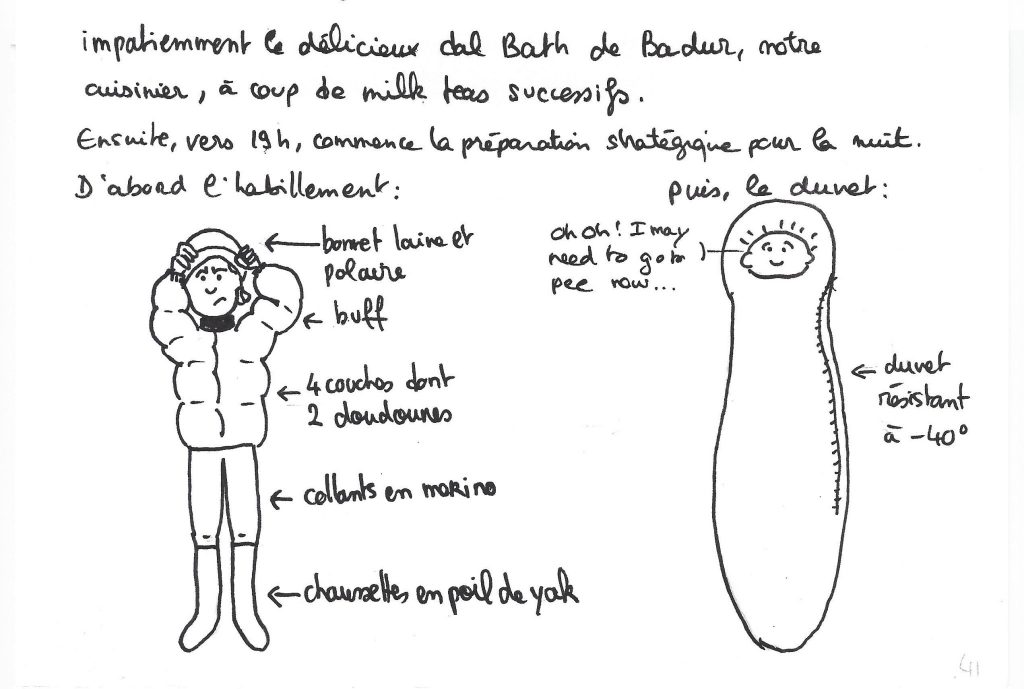 impatiemment le délicieux dal Bath de Badur, notre
cuisinier, à coup de milk teas successifs.
Ensuite, vers 19h, commence la préparation stratégique pour la nuit.
D'abord l'habillement:
puis, le duvet:
bonnet laine et
polaire
buff
4 couches dont
2 doudounes
collants en merino
chaussettes en poil de yak
oh oh! I may
need to go to
pee now...
duvet
résistant
à -40°
41